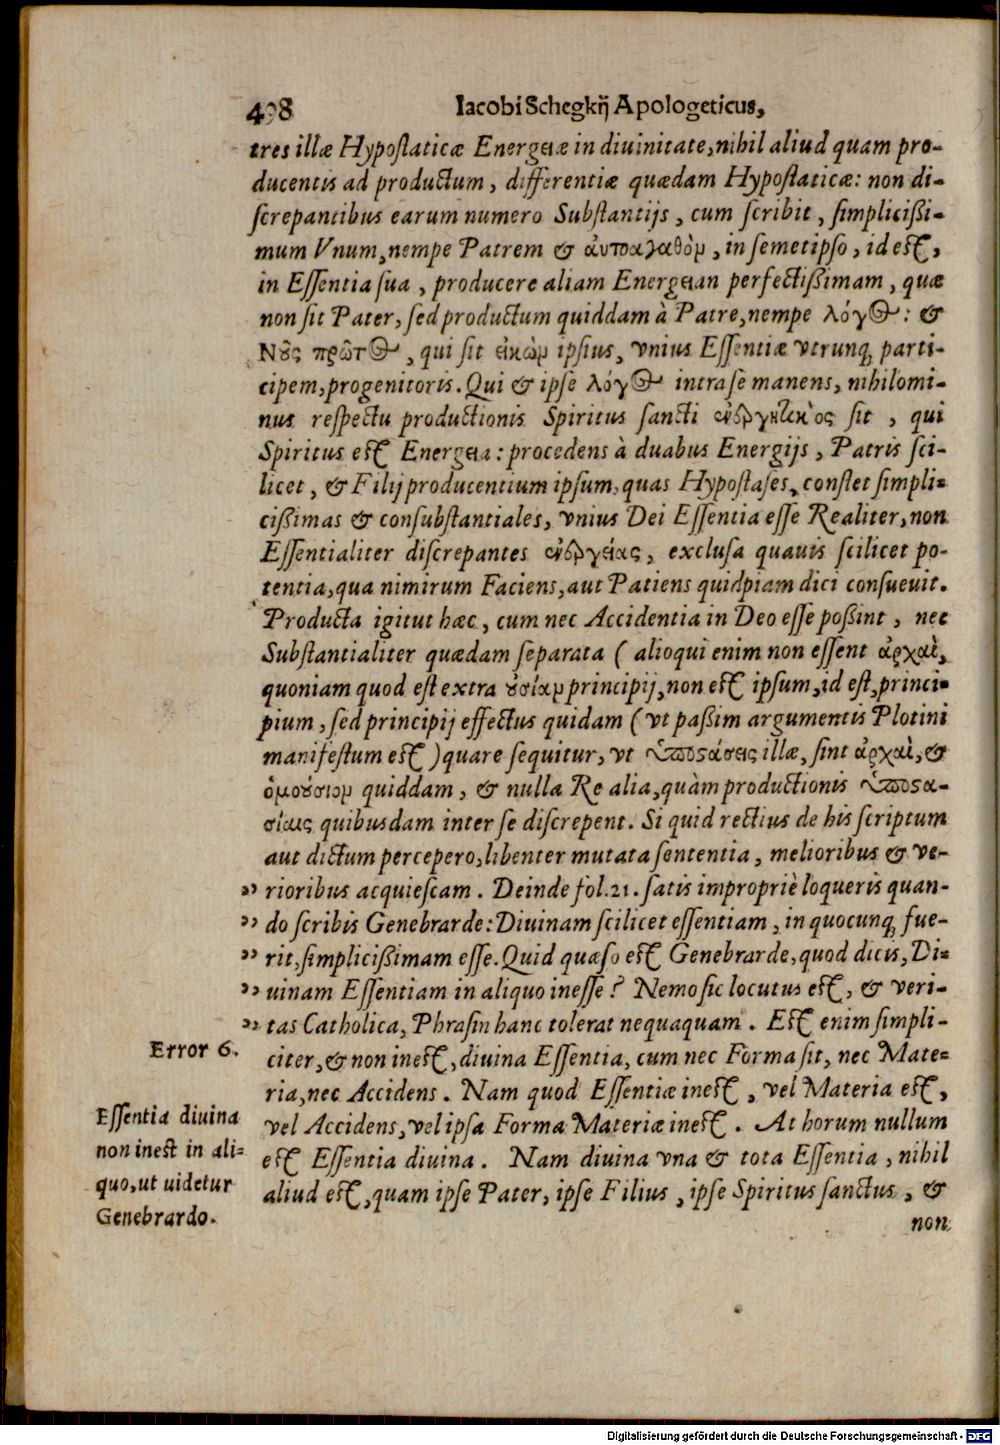 408 Iacobi Schegkij Apologeticus,
tres illæ Hypostaticæ Energeiæ in diuinitate, nihil aliud quam pro-
ducentis ad productum, differentiæ quædam Hypostaticæ: non di-
screpantibus earum numero Substantijs, cum scribit, simplicißi-
mum Vnum, nempe Patrem & αὐτοαγαθὸν, in semetipso, id est,
in Essentia sua, producere aliam Energeian perfectißimam, quæ
non sit Pater, sed productum quiddam à Patre, nempe λόγος: &
Νοῦς πρῶτος, qui sit εἰκὼν ipsius, vnius Essentiæ vtrunq; parti-
cipem, progenitoris. Qui & ipse λόγος intra se manens, nihilomi-
nus respectu productionis Spiritus sancti ἐνεργητικὸς sit, qui
Spiritus est Energeia: procedens à duabus Energijs, Patris sci-
licet, & Filij producentium ipsum, quas Hypostases, constet simpli-
cißimas & consubstantiales, vnius Dei Essentia esse Realiter, non
Essentialiter discrepantes ἐνεργείας, exclusa quauis scilicet po-
tentia, qua nimirum Faciens, aut Patiens quidpiam dici consueuit.
Producta igitut hæc, cum nec Accidentia in Deo esse poßint, nec
Substantialiter quædam separata (alioqui enim non essent ἀρχαὶ,
quoniam quod est extra οὐσίαν principij, non est ipsum, id est, princi-
pium, sed principij effectus quidam (vt paßim argumentis Plotini
manifestum est) quare sequitur, vt ὑποστάσεις illæ, sint ἀρχαὶ, &
ὁμοούσιον quiddam, & nulla Re alia, quàm productionis ὑποστα-
σίαις quibusdam inter se discrepent. Si quid rectius de his scriptum
aut dictum percepero, libenter mutata sententia, melioribus & ve-
” rioribus acquiescam. Deinde fol. 21. satis impropriè loqueris quan-
” do scribis Genebrarde: Diuinam scilicet essentiam, in quocunq; fue-
” rit, simplicißimam esse. Quid quæso est Genebrarde, quod dicis, Di-
” uinam Essentiam in aliquo inesse? Nemo sic locutus est, & veri-
” tas Catholica, Phrasin hanc tolerat nequaquam. Est enim simpli-
Error 6.
citer, & non inest, diuina Essentia, cum nec Forma sit, nec Mate-
ria, nec Accidens. Nam quod Essentiæ inest, vel Materia est,
vel Accidens, vel ipsa Forma Materiæ inest. At horum nullum
est Essentia diuina. Nam diuina vna & tota Essentia, nihil
aliud est, quam ipse Pater, ipse Filius, ipse Spiritus sanctus, &
Essentia diuina
non inest in ali-
quo, ut uidetur
Genebrardo.
non
Digitalisierung gefördert durch die Deutsche Forschungsgemeinschaft - DFG